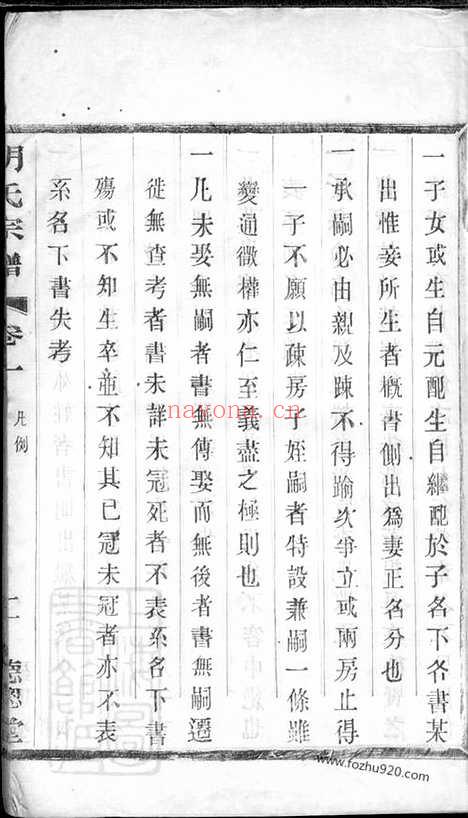 一子女或生自元配生自繼配於子名下各書某
出惟妾所生者概書側出爲妻正名分也
一承嗣必由親及踈不得踰次爭立或兩房止得
一子不願以疎房子姪嗣者特設兼嗣一條雖
變通微權亦仁至義盡之極則也
一凡未娶無嗣者書無傳娶而無後者書無嗣遷
徙無查考者書未詳未冠死者不表系名下書
殤或不知生卒並不知其已冠未冠者亦不表
系名下書失考
明氏宗譜 卷一 凡例 二 德聰堂
nayona.cn
www.fozhu920.com